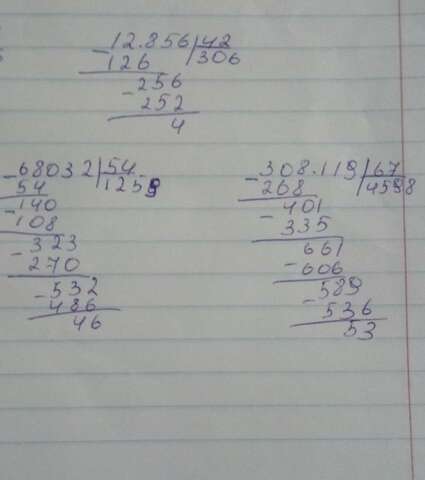 - 12.856 | 42
126 306
- 256
252
4
- 68032 | 54
54 1259
- 140
108
- 323
270
- 532
486
46
- 308.119 | 67
268 4598
- 401
335
661
- 606
589
- 536
53